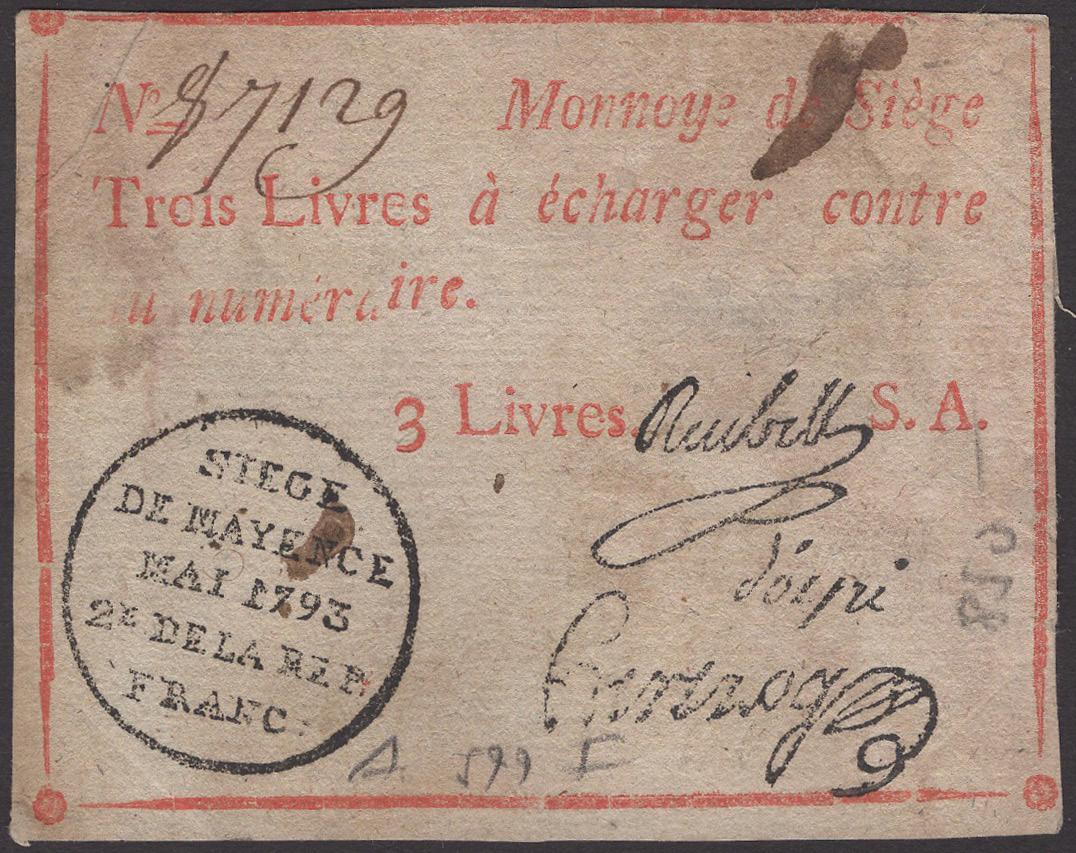 Nº 87129 Monnoye de Siège
Trois Livres à écharger contre
du numéraire.
3 Livres. S. A.
Reubell
d'oyré
SIEGE
DE MAYENCE
MAI 1793
2E DE LA REP.
FRANC.
A 599 I
850